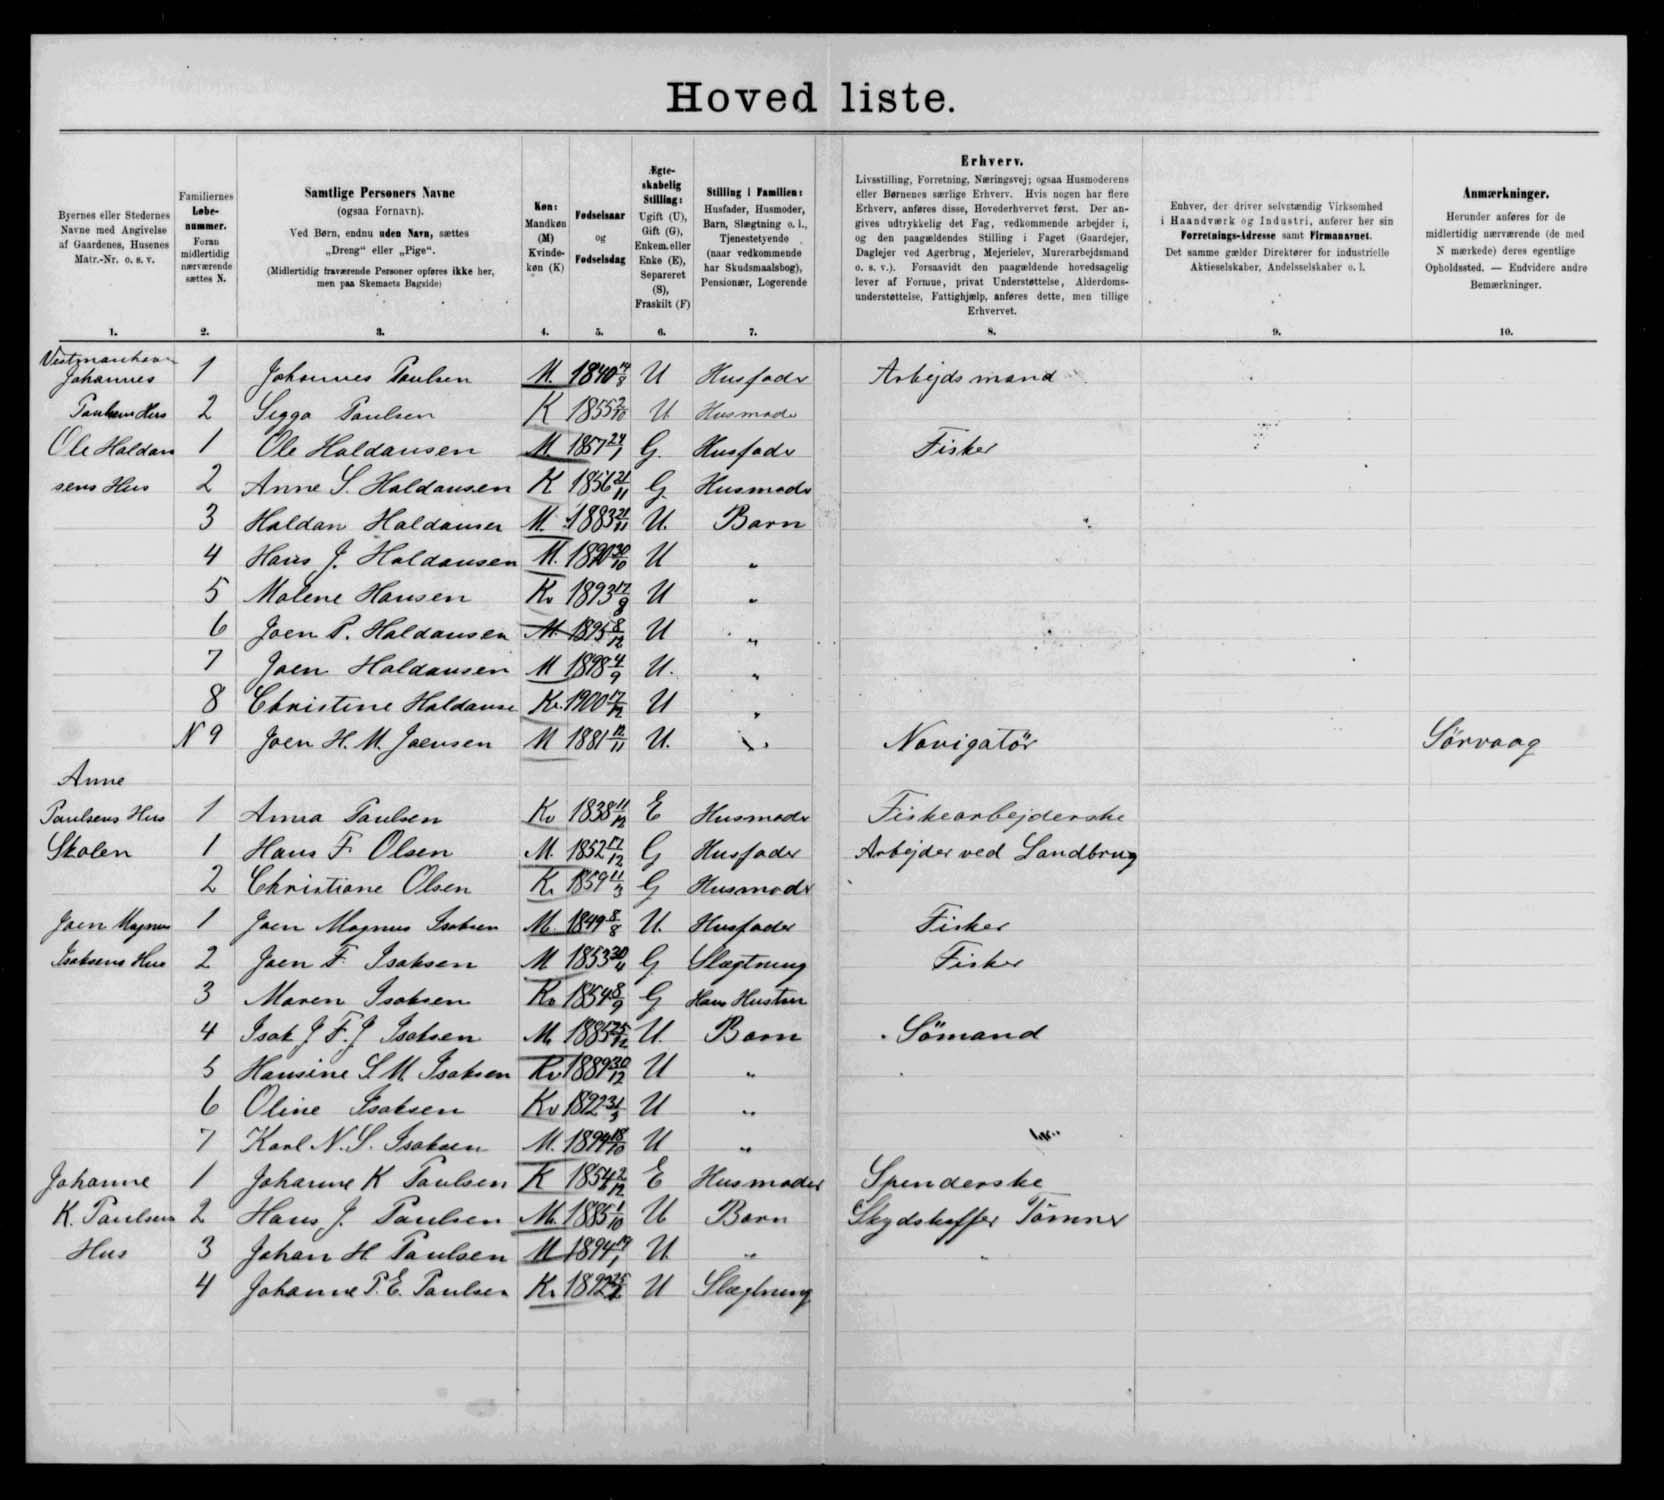 Hoved liste.
Byernes eller Stedernes Navne med Angivelse af Gaardenes, Husenes Matr.-Nr. o. s. v.
Familiernes Løbenummer. Foran midlertidig nærværende sættes N.
Samtlige Personers Navne
(ogsaa Fornavn).
Ved Børn, endnu uden Navn, sættes „Dreng“ eller „Pige“.
(Midlertidig fraværende Personer opføres ikke her, men paa Skemaets Bagside)
Køn: Mandkøn (M) Kvindekøn (K)
Fødselsaar og Fødselsdag
Ægteskabelig Stilling: Ugift (U), Gift (G), Enkem. eller Enke (E), Separeret (S), Fraskilt (F)
Stilling i Familien: Husfader, Husmoder, Barn, Slægtning o. l., Tjenestetyende (naar vedkommende har Skudsmaalsbog), Pensionær, Logerende
Erhverv.
Livsstilling, Forretning, Næringsvej; ogsaa Husmoderens eller Børnenes særlige Erhverv. Hvis nogen har flere Erhverv, anføres disse, Hovederhvervet først. Der angives udtrykkelig det Fag, vedkommende arbejder i, og den paagældendes Stilling i Faget (Gaardejer, Daglejer ved Agerbrug, Mejerielev, Murerarbejdsmand o. s. v.). Forsaavidt den paagældende hovedsagelig lever af Formue, privat Understøttelse, Alderdomsunderstøttelse, Fattighjælp, anføres dette, men tillige Erhvervet.
Enhver, der driver selvstændig Virksomhed i Haandværk og Industri, anfører her sin Forretnings-Adresse samt Firmanavnet. Det samme gælder Direktører for industrielle Aktieselskaber, Andelsselskaber o. l.
Anmærkninger.
Herunder anføres for de midlertidig nærværende (de med N mærkede) deres egentlige Opholdssted. — Endvidere andre Bemærkninger.
1. 2. 3. 4. 5. 6. 7. 8. 9. 10.
Vestmanhavn
Johannes 1 Johannes Paulsen M. 1840 14/8 U Husfader Arbejdsmand
Paulsens Hus 2 Sigga Paulsen K 1855 2/10 U Husmoder
Ole Haldan 1 Ole Haldansen M 1857 24/1 G. Husfader Fisker
sens Hus 2 Anne S. Haldansen K 1856 21/11 G Husmoder
3 Haldan Haldansen M. 1883 21/11 U. Barn
4 Hans J. Haldansen M. 1890 30/10 U "
5 Malene Hansen Kv 1893 17/8 U "
6 Joen P. Haldansen M. 1895 8/12 U "
7 Joen Haldansen M 1898 4/9 U. "
8 Christine Haldanse Kv. 1900 17/12 U "
N 9 Joen H. M. Joensen M 1881 12/11 U. Navigatör Sörvaag
Anne
Paulsens Hus 1 Anna Paulsen Kv 1838 11/12 E Husmoder Fiskearbejderske
Skolen 1 Hans F. Olsen M. 1852 17/12 G Husfader Arbejder ved Landbrug
2 Christiane Olsen K. 1859 11/3 G Husmoder
Joen Magnus 1 Joen Magnus Isaksen M. 1849 8/8 U. Husfader Fisker
Isaksens Hus 2 Joen F. Isaksen M 1853 30/4 G Slægtning Fisker
3 Maren Isaksen Kv 1854 8/9 G Hans Hustru
4 Isak J. F. J Isaksen M. 1885 25/12 U. Barn Sömand
5 Hansine S M. Isaksen Kv 1889 30/12 U "
6 Oline Isaksen Kv 1892 31/3 U "
7 Karl N. S. Isaksen M. 1894 18/10 U "
Johanne 1 Johanne K Paulsen K 1854 2/12 E Husmoder Spenderske
K. Paulsens 2 Hans J. Paulsen M. 1885 1/10 U Barn Skydskaffer Tömrer
Hus 3 Johan H. Paulsen M 1894 19/1 U. " "
4 Johanne P. E. Paulsen Kv 1892 U Slægtning